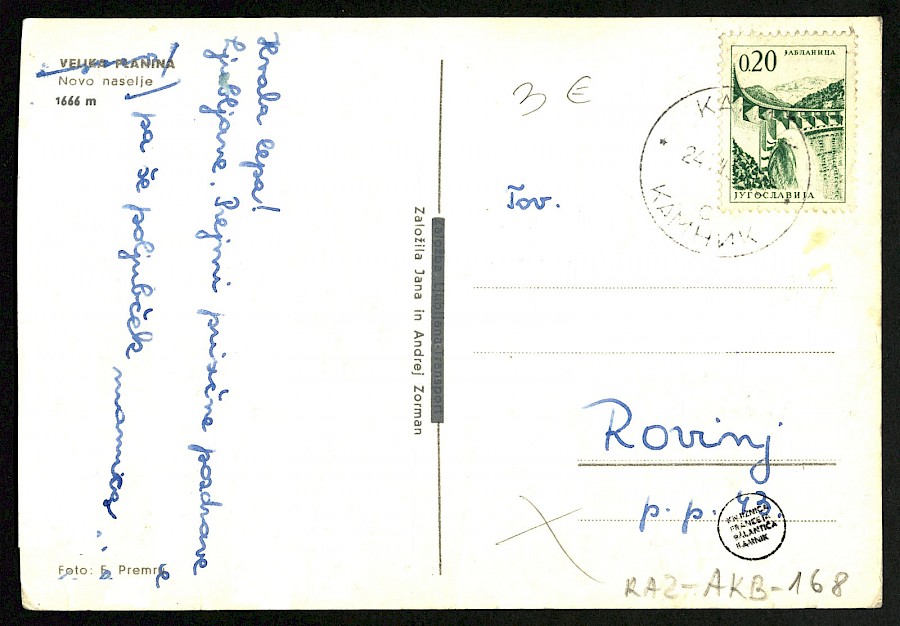 VELIKA PLANINA
Novo naselje
1666 m
Hvala lepa!
Ljubljane. Prejmi prisrčne pozdrave
pa še poljubček mamica
Foto: F. Premru
Založila Jana in Andrej Zorman
Založba Ljubljana-Transport
3 €
0.20
ЈАБЛАНИЦА
ЈУГОСЛАВИЈА
KA
24.
КАМНИК
Tov.
Rovinj
p. p. 43.
KNJIŽNICA
FRANCETA
BALANTIČA
KAMNIK
RAZ-AKB-168